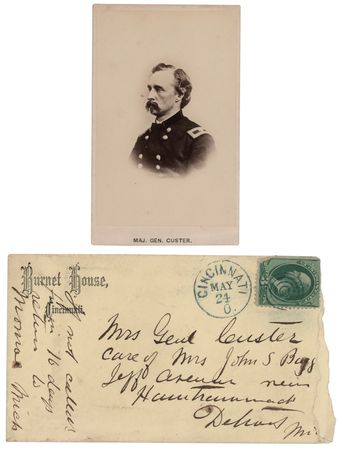 MAJ. GEN. CUSTER.
Burnet House,
Cincinnati.
If not called
for in 10 days
return to
Monroe Mich
CINCINNATI
MAY
24
O.
Mrs Genl Custer
care of Mrs John S Bagg
Jeff Avenue near
Hamtrammack
Detroit
Mi